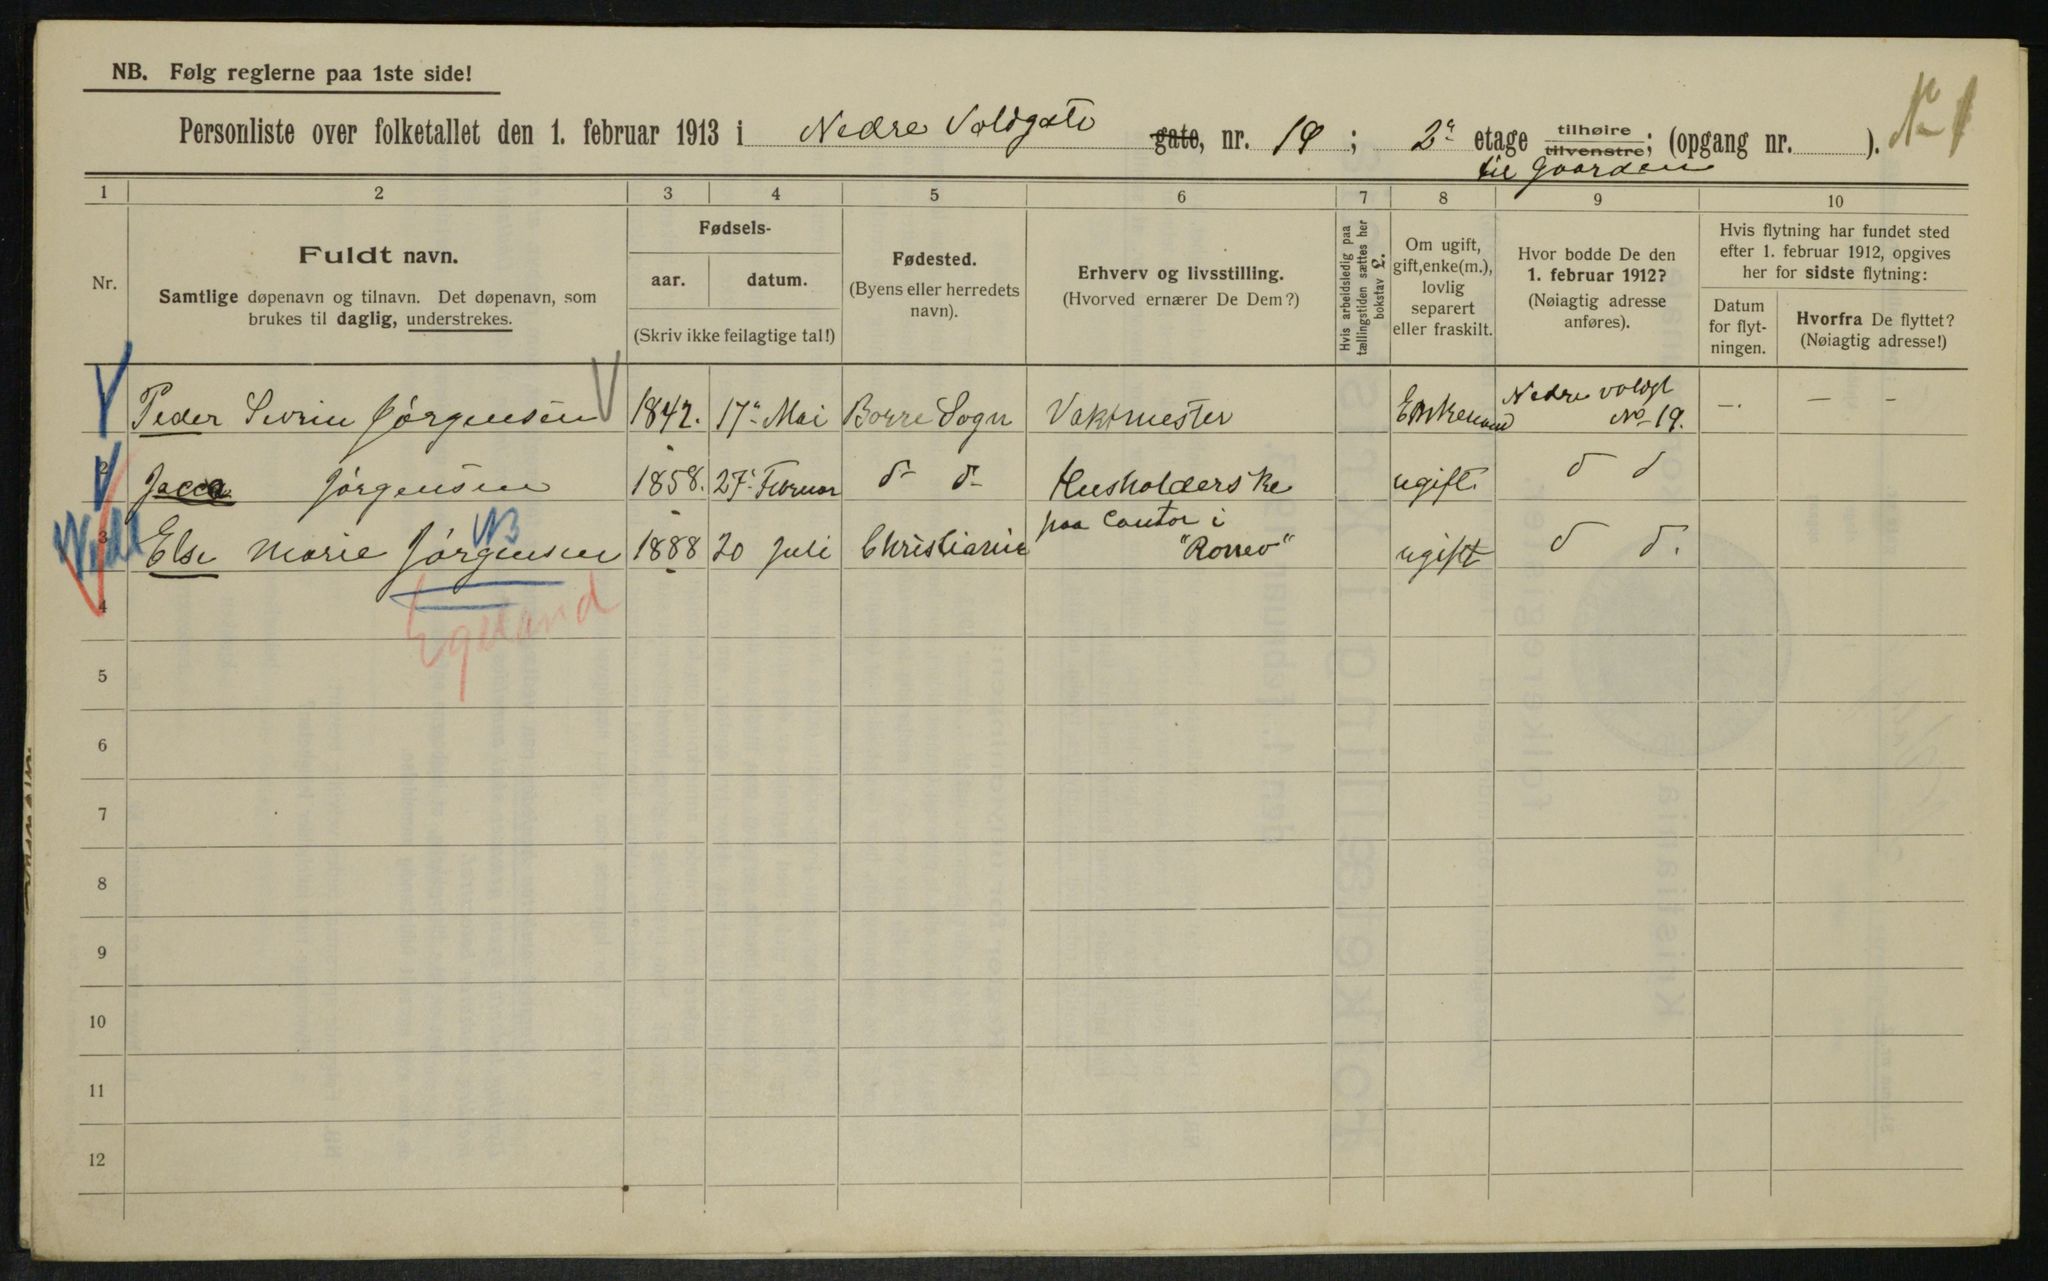 NB. Følg reglerne paa 1ste side!
Personliste over folketallet den 1. februar 1913 i Nedre Voldgate gate, nr. 19; 2ª etage tilhøire tilvenstre; (opgang nr. ). No 1
til Gaarden
1 2 3 4 5 6 7 8 9 10
Nr.
Fuldt navn.
Samtlige døpenavn og tilnavn. Det døpenavn, som
brukes til daglig, understrekes.
Fødsels-
aar. datum.
(Skriv ikke feilagtige tal!)
Fødested.
(Byens eller herredets
navn).
Erhverv og livsstilling.
(Hvorved ernærer De Dem?)
Hvis arbeidsledig paa
tællingstiden sættes her
bokstav L.
Om ugift,
gift, enke(m.),
lovlig
separert
eller fraskilt.
Hvor bodde De den
1. februar 1912?
(Nøiagtig adresse
anføres).
Hvis flytning har fundet sted
efter 1. februar 1912, opgives
her for sidste flytning:
Datum
for flyt-
ningen.
Hvorfra De flyttet?
(Nøiagtig adresse!)
Peder Sevrin Jørgensen 1842. 17 Mai Borre Sogn Vaktmester Enkemand Nedre voldgt No 19. — — —
2 Jacca Jørgensen 1858. 27 Februar d d Husholderske ugift. d d
3 Else Marie Jørgensen NB 1888 20 Juli Christiania paa Contor i "Ronev" ugift d d.
4 Egeland
5
6
7
8
9
10
11
12